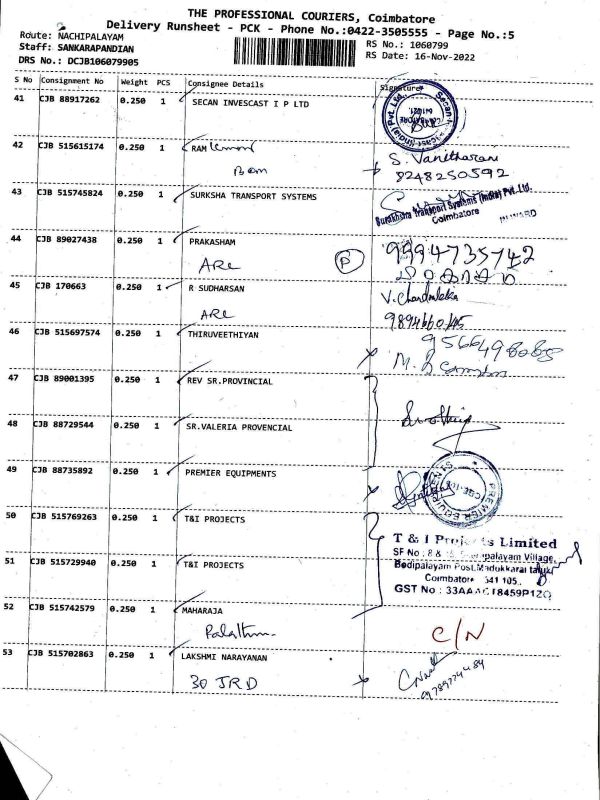 THE PROFESSIONAL COURIERS, Coimbatore
Delivery Runsheet - PCK - Phone No.:0422-3505555 - Page No.:5
Route: NACHIPALAYAM
RS No.: 1060799
Staff: SANKARAPANDIAN
RS Date: 16-Nov-2022
DRS No.: DCJB106079905
S No Consignment No Weight PCS Consignee Details Signature
41 CJB 88917262 0.250 1 SECAN INVESCAST I P LTD
42 CJB 515615174 0.250 1 RAM lemon
S. Vanitharani
8248250592
43 CJB 515745824 0.250 1 SURKSHA TRANSPORT SYSTEMS
Surakhsha Transport Systems (India) Pvt. Ltd.
Coimbatore INWARD
44 CJB 89027438 0.250 1 PRAKASHAM
9994735742
ARC P
45 CJB 170663 0.250 1 R SUDHARSAN
V. Chandraleka
ARC
46 CJB 515697574 0.250 1 THIRUVEETHIYAN
47 CJB 89001395 0.250 1 REV SR.PROVINCIAL
48 CJB 88729544 0.250 1 SR.VALERIA PROVENCIAL
49 CJB 88735892 0.250 1 PREMIER EQUIPMENTS
50 CJB 515769263 0.250 1 T&I PROJECTS
T & I Projects Limited
SF No : 8 &
Village,
51 CJB 515729940 0.250 1 T&I PROJECTS
Bodipalayam Post, Madukkarai taluk
Coimbatore 641 105.
GST No : 33AAACT8459P1ZQ
52 CJB 515742579 0.250 1 MAHARAJA
C/N
53 CJB 515702863 0.250 1 LAKSHMI NARAYANAN
30 JRD
9789774484